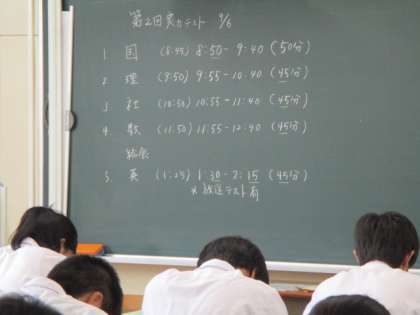 第2回実力テスト 9/6
1. 国 (8:45) 8:50 - 9:40 (50分)
2. 理 (9:50) 9:55 - 10:40 (45分)
3. 社 (10:50) 10:55 - 11:40 (45分)
4. 数 (11:50) 11:55 - 12:40 (45分)
給食
5. 英 (1:25) 1:30 - 2:15 (45分)
※放送テスト有